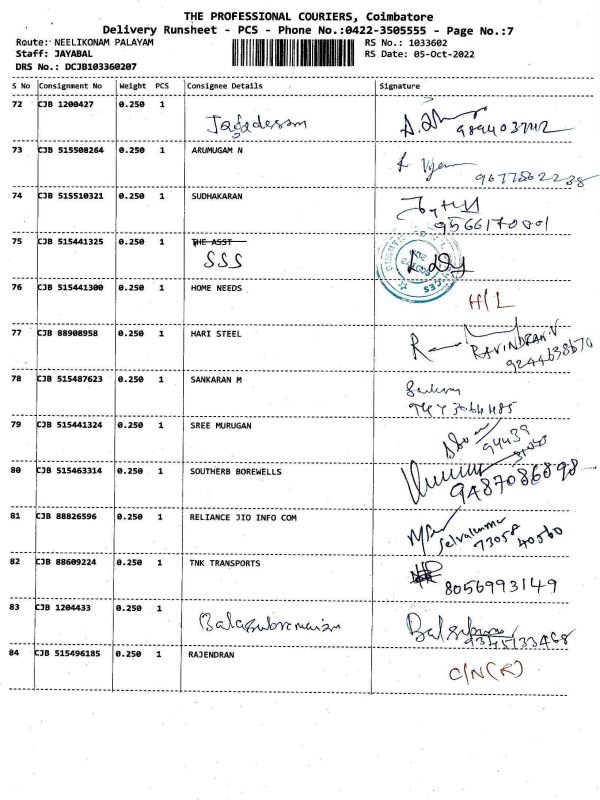 THE PROFESSIONAL COURIERS, Coimbatore
Delivery Runsheet - PCS - Phone No.:0422-3505555 - Page No.:7
Route: NEELIKONAM PALAYAM RS No.: 1033602
Staff: JAYABAL RS Date: 05-Oct-2022
DRS No.: DCJB103360207
S No Consignment No Weight PCS Consignee Details Signature
72 CJB 1200427 0.250 1 Jagadesam
73 CJB 515508264 0.250 1 ARUMUGAM N
9677862238
74 CJB 515510321 0.250 1 SUDHAKARAN
9566170001
75 CJB 515441325 0.250 1 THE ASST
SSS
76 CJB 515441300 0.250 1 HOME NEEDS
H/L
77 CJB 88908958 0.250 1 HARI STEEL
RAVINDRAN.V
9244638670
78 CJB 515487623 0.250 1 SANKARAN M
79 CJB 515441324 0.250 1 SREE MURUGAN
94439
80 CJB 515463314 0.250 1 SOUTHERB BOREWELLS
9487086898
81 CJB 88826596 0.250 1 RELIANCE JIO INFO COM
Selvakumar
73058 40560
82 CJB 88609224 0.250 1 TNK TRANSPORTS
8056993149
83 CJB 1204433 0.250 1 Balasubramaian
9345133468
84 CJB 515496185 0.250 1 RAJENDRAN
C/N(R)